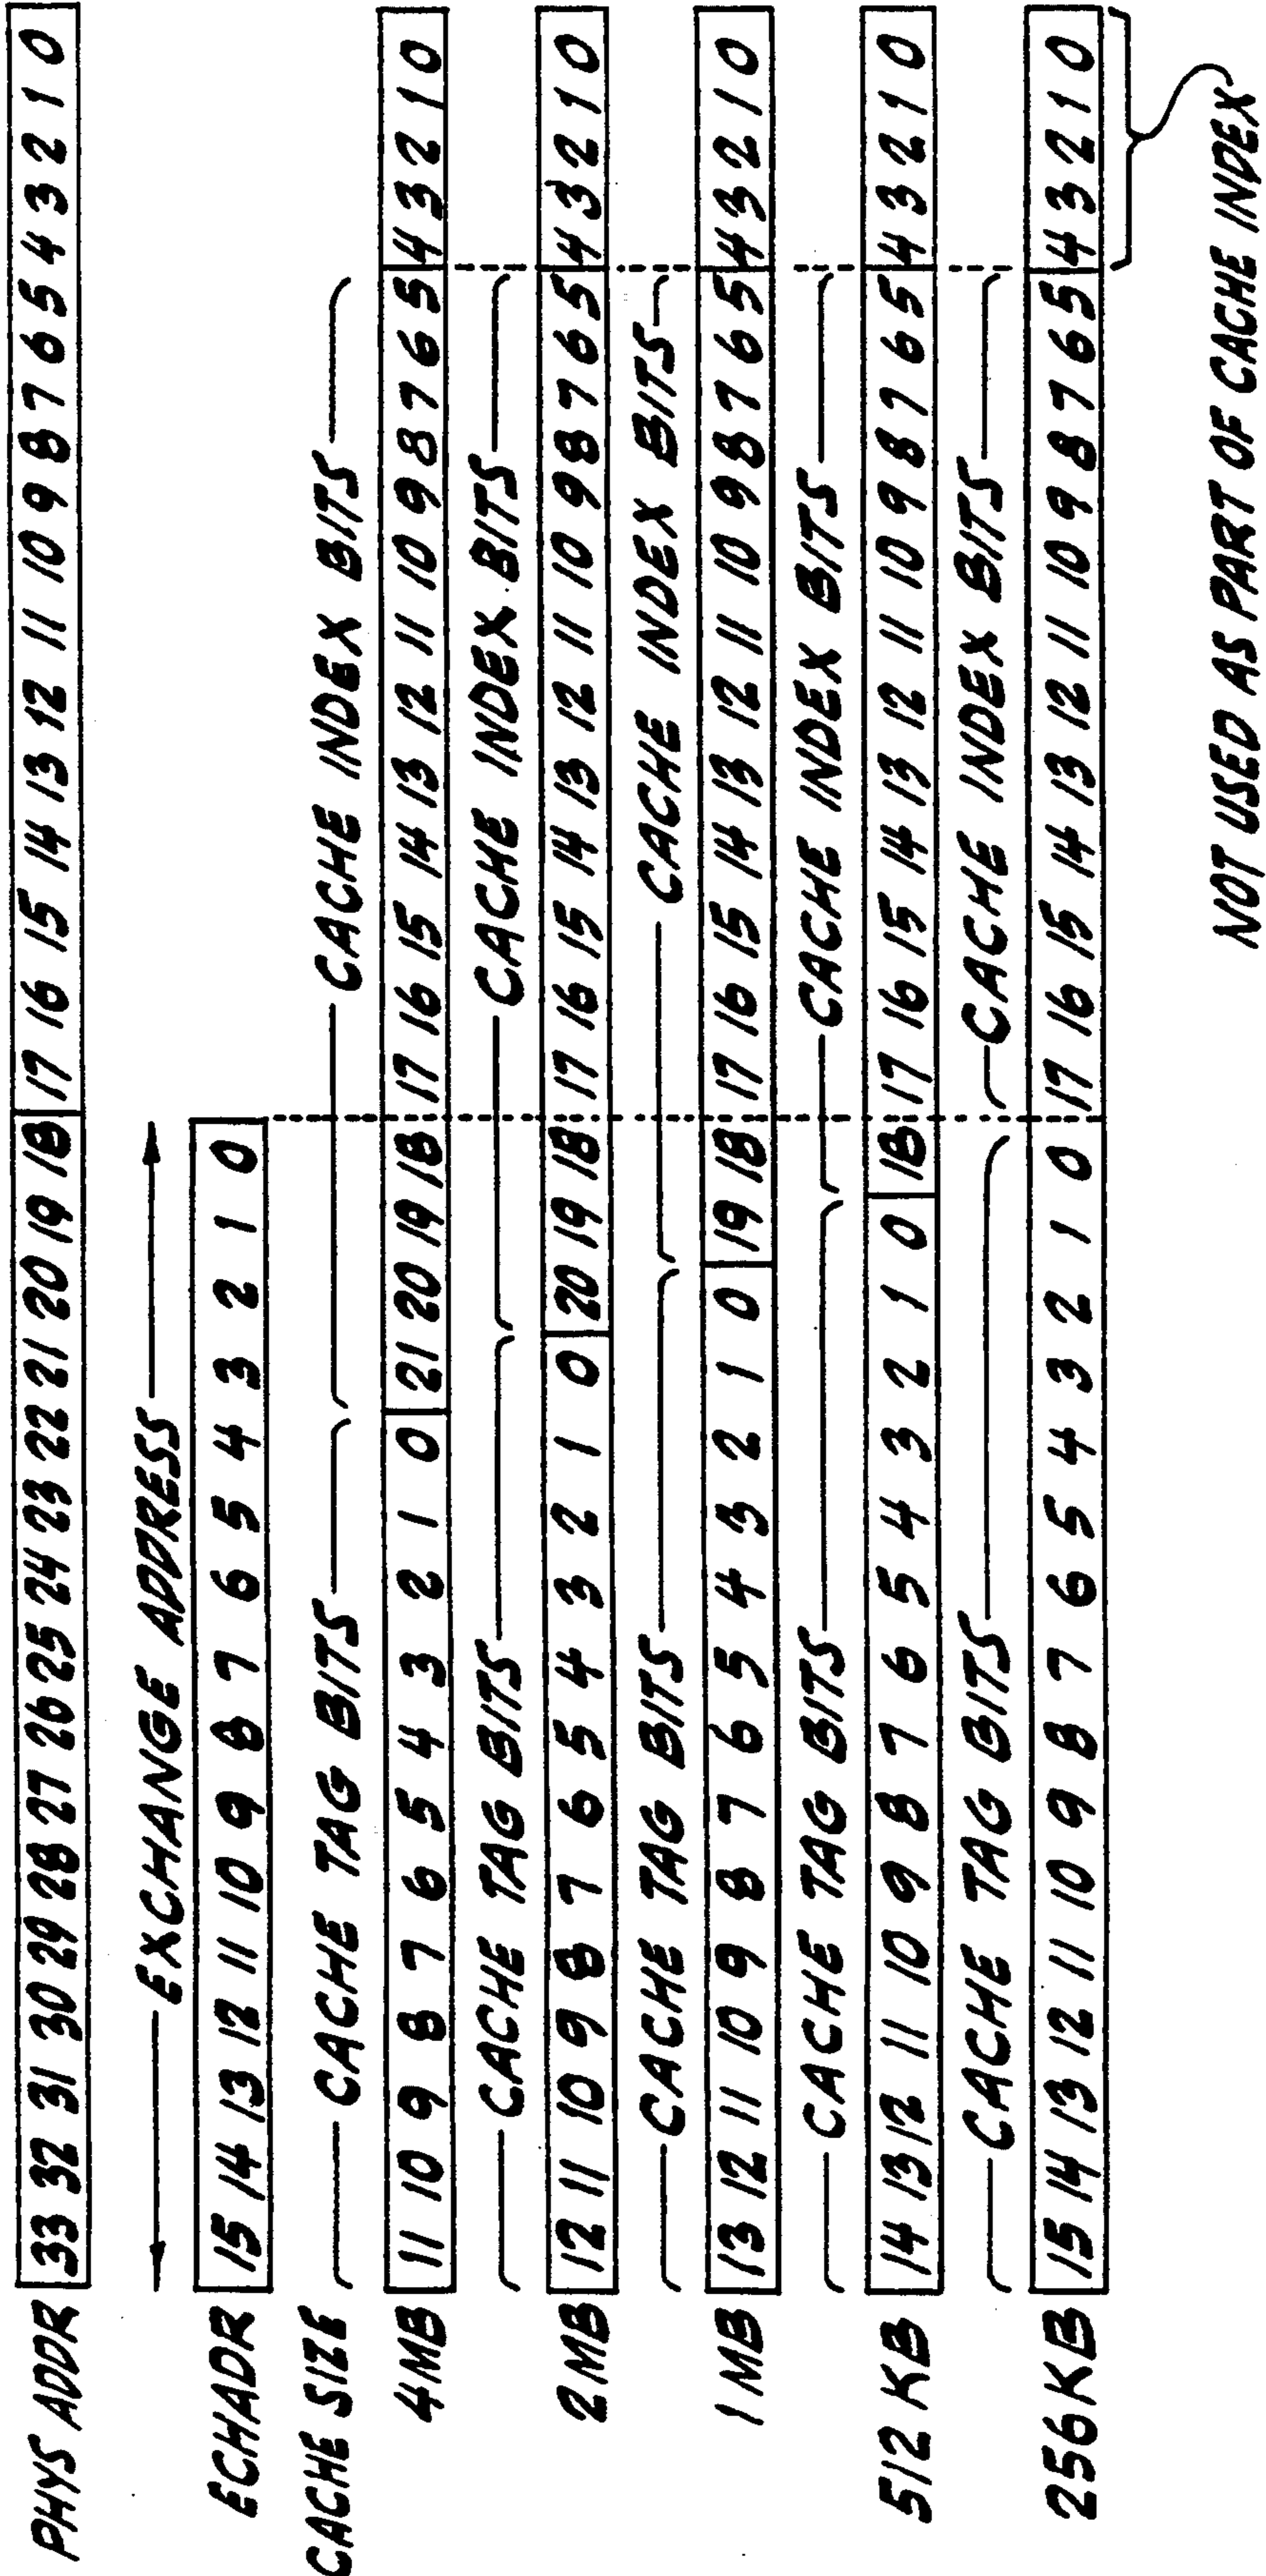 PHYS ADDR 33 32 31 30 29 28 27 26 25 24 23 22 21 20 19 18 17 16 15 14 13 12 11 10 9 8 7 6 5 4 3 2 1 0
EXCHANGE ADDRESS
ECHADR 15 14 13 12 11 10 9 8 7 6 5 4 3 2 1 0
CACHE SIZE CACHE TAG BITS CACHE INDEX BITS
4MB 11 10 9 8 7 6 5 4 3 2 1 0 21 20 19 18 17 16 15 14 13 12 11 10 9 8 7 6 5 4 3 2 1 0
CACHE TAG BITS CACHE INDEX BITS
2MB 12 11 10 9 8 7 6 5 4 3 2 1 0 20 19 18 17 16 15 14 13 12 11 10 9 8 7 6 5 4 3 2 1 0
CACHE TAG BITS CACHE INDEX BITS
1 MB 13 12 11 10 9 8 7 6 5 4 3 2 1 0 19 18 17 16 15 14 13 12 11 10 9 8 7 6 5 4 3 2 1 0
CACHE TAG BITS CACHE INDEX BITS
512 KB 14 13 12 11 10 9 8 7 6 5 4 3 2 1 0 18 17 16 15 14 13 12 11 10 9 8 7 6 5 4 3 2 1 0
CACHE TAG BITS CACHE INDEX BITS
256KB 15 14 13 12 11 10 9 8 7 6 5 4 3 2 1 0 17 16 15 14 13 12 11 10 9 8 7 6 5 4 3 2 1 0
NOT USED AS PART OF CACHE INDEX